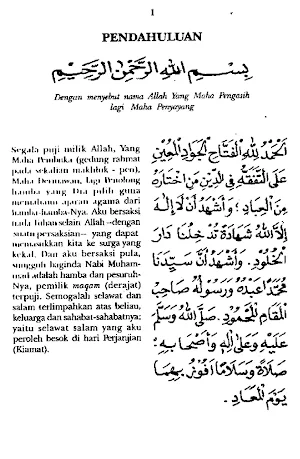 1
PENDAHULUAN
بِسْمِ اللهِ الرَّحْمٰنِ الرَّحِيْمِ
Dengan menyebut nama Allah Yang Maha Pengasih
lagi Maha Penyayang
Segala puji milik Allah, Yang
Maha Pembuka (gedung rahmat
pada sekalian makhluk - pen),
Maha Dermawan, lagi Penolong
hamba yang Dia pilih guna
memahami ajaran agama dari
hamba-hamba-Nya. Aku bersaksi
tiada tuhan selain Allah --dengan
suatu persaksian-- yang dapat
memasukkan kita ke surga yang
kekal. Dan aku bersaksi pula,
sungguh baginda Nabi Muham-
mad adalah hamba dan pesuruh-
Nya, pemilik maqam (derajat)
terpuji. Semogalah selawat dan
salam terlimpahkan atas beliau,
keluarga dan sahabat-sahabatnya;
yaitu selawat salam yang aku
peroleh besok di hari Perjanjian
(Kiamat).
اَلْحَمْدُ لِلّٰهِ الْفَتَّاحِ الْجَوَادِ الْمُعِيْنِ
عَلَى التَّفَقُّهِ فِى الدِّيْنِ مَنِ اخْتَارَهُ
مِنَ الْعِبَادِ ؛ وَاَشْهَدُ اَنْ لَا اِلٰهَ
اِلَّا اللهُ شَهَادَةً تُدْخِلُنَا دَارَ
الْخُلُوْدِ. وَاَشْهَدُ اَنَّ سَيِّدَنَا
مُحَمَّدًا عَبْدُهُ وَرَسُوْلُهُ صَاحِبُ
الْمَقَامِ الْمَحْمُوْدِ. صَلَّى اللهُ وَسَلَّمَ
عَلَيْهِ وَعَلَى اٰلِهِ وَاَصْحَابِهِ ؛
صَلَاةً وَسَلَامًا اَفُوْزُ بِهِمَا
يَوْمَ الْمَعَادِ.